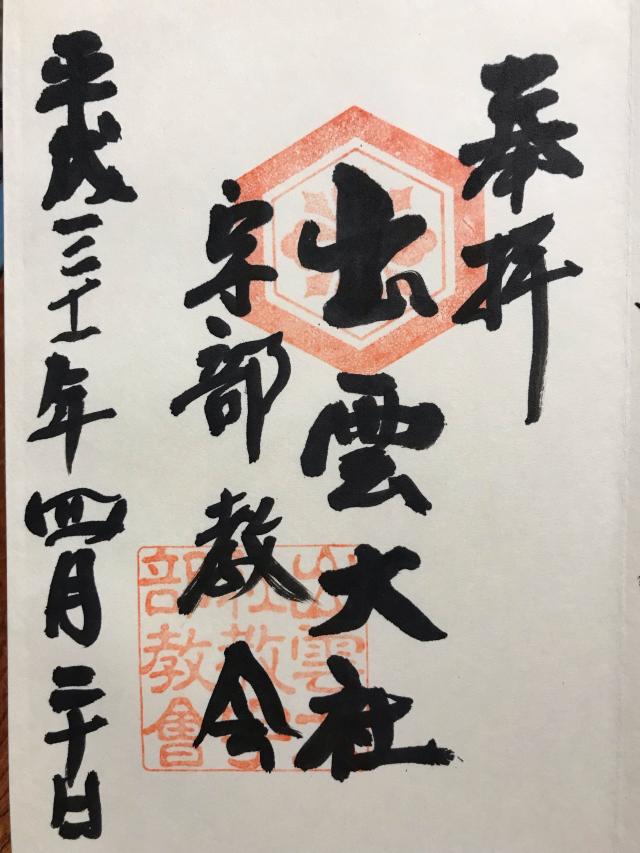 奉拝
出雲大社
宇部教会
平成三十一年四月二十日
出雲大
社教宇
部教會